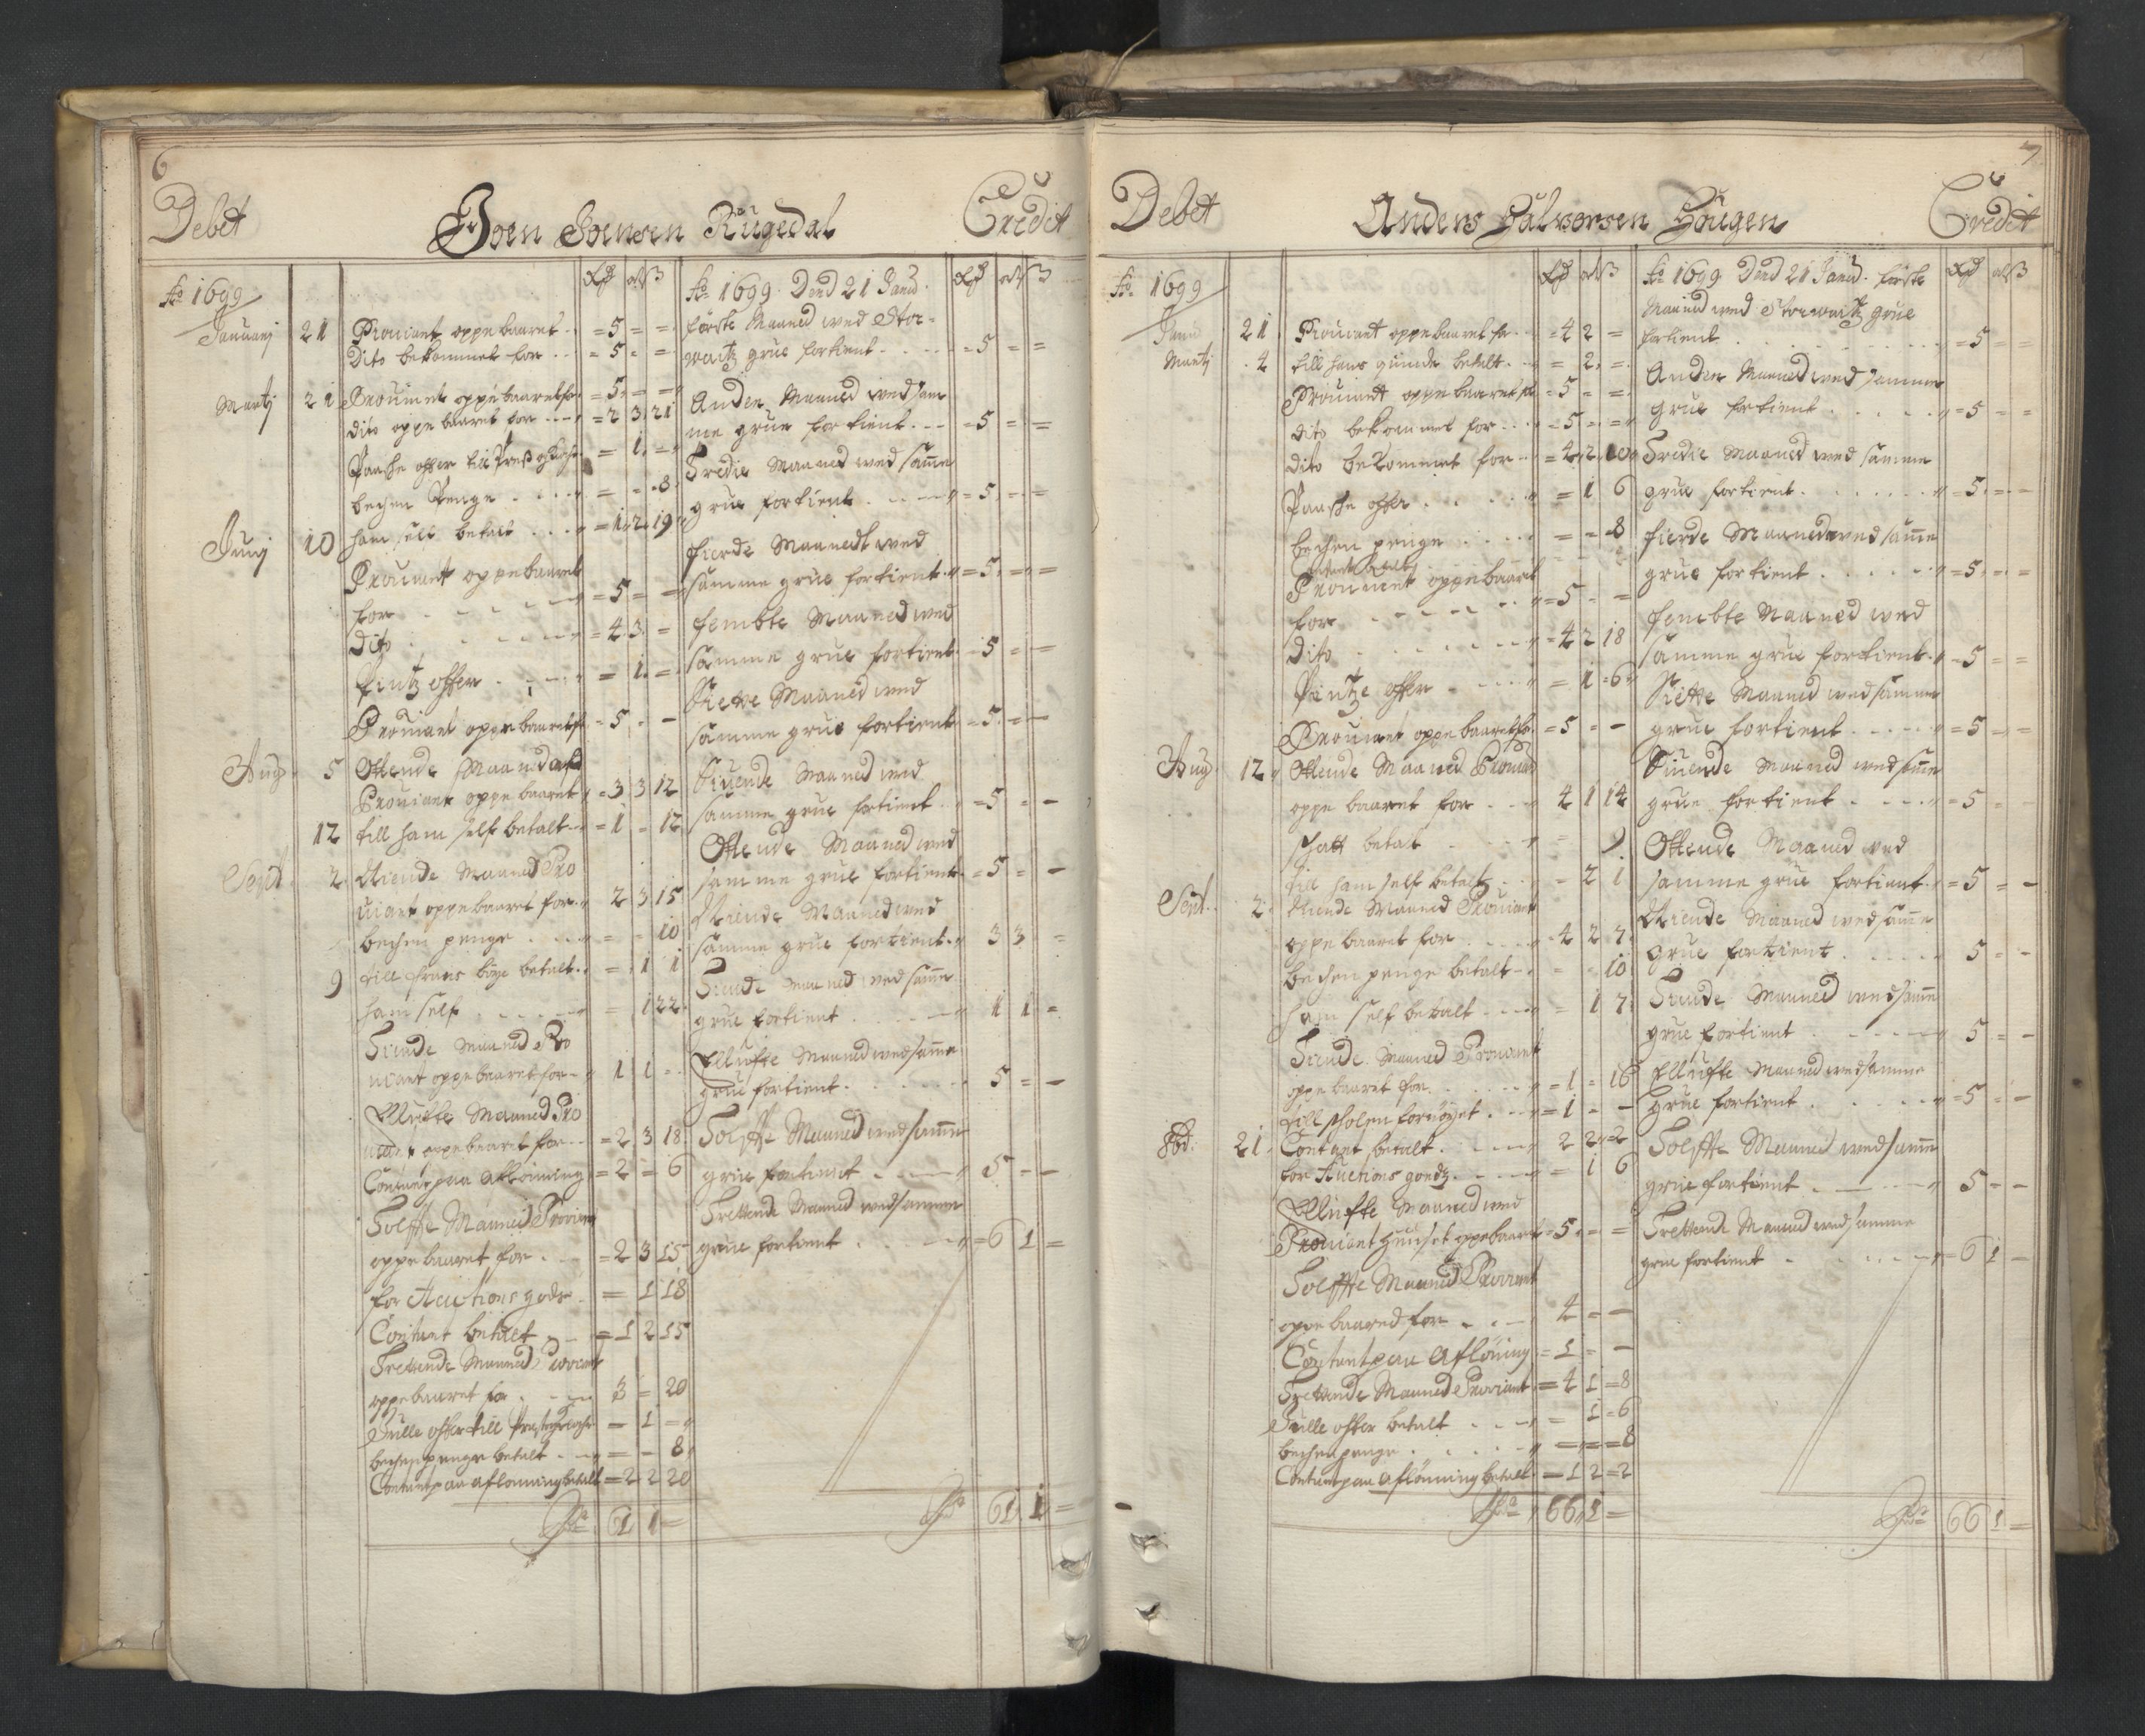 6
Debet
Joen Joensen Rügedal
Credit
Ao 1699
Januarj 21 Prouiant oppebaaret = 5 = =
Dito bekommet for = 5 = =
Martj 21 Prouiant oppebaaret for = 5 = =
dito oppebaaret for = 2 3 21
Paaske offer till Prest og = 1 =
bechen Penge = = 8
Junj 10 ham self betalt = 1 2 19
Prouiant oppebaaret
for = 5 = =
dito = 4 3 =
Pintz offer = 1 =
Prouiant oppebaaret for = 5 = =
Aug 5 Ottende Maaned
Prouiant oppebaaret = 3 3 12
12 till ham self betalt = 1 = 12
Sept 2 Niende Maaned Pro
uiant oppebaaret for 2 3 15
bechen penge = = 10
9 till betalt = 1 1
ham self = 1 22
Tiende Maaned Pro
uiant oppebaaret for 1 1 =
Ellufte Maaned Pro
uiant oppebaaret for = 2 3 18
Contant paa Aflöning = 2 = 6
Tolffte Maaned Proviant
oppebaaret for = 2 3 15
for Auctions gods = 1 18
Contant betalt = 1 2 15
Trettende Maaned Proviant
oppebaaret for 3 = 20
Julle offer till = 1 =
bechenpenge betalt = = 8
Contant paa aflönning betalt = 2 2 20
61 1 =
Ao 1699 Dend 21 Janu
förste Maaned wed Stor-
waitz grue fortient = 5 = =
Anden Maaned wed sam
me grue fortient = 5 = =
Tredie Maaned wed samme
grue fortient = 5 = =
fierde Maanedt wed
samme grue fortient = 5 = =
fembte Maaned wed
samme grue fortient = 5 = =
Siette Maaned wed
samme grue fortient = 5 = =
Siuende Maaned wed
samme grue fortient = 5 = =
Ottende Maaned wed
samme grue fortient = 5 = =
Niende Maaned wed
samme grue fortient 3 3 =
Tiende Maaned wed samme
grue fortient 1 1 =
Ellufte Maaned wed samme
grue fortient 5 = =
Tolffte Maaned wed samme
grue fortient 5 = =
Trettende Maaned wed samme
grue fortient = 6 1 =
61 1 =
7
Debet
Anders Halvorsen Hougen
Credit
Ao 1699
Janu 21 Prouiant oppebaaret for = 4 2 =
Martj 4 till hans quinde betalt = 2 =
Prouiant oppebaaret for = 5 = =
dito bekommet for = 5 = =
dito bekommet for = 4 2 10
Paaske offer = 1 6
bechen penge = = 8
Prouiant oppebaaret
for = 5 = =
dito = 4 2 18
Pintze offer = 1 = 6
Prouiant oppebaaret for = 5 = =
Aug 12 Ottende Maaned Prouiant
oppebaaret for 4 1 14
schatt betalt = 9
till ham self betalt = 2 1
Sept 2 Niende Maaned Prouiant
oppebaaret for 4 2 7
bechenpenge betalt = = 10
ham self betalt = 1 7
Tiende Maaned Prouiant
oppebaaret for = 1 = 16
till scholen fornöyet = 1 = =
8br 21 Contant betalt 2 2 = 2
for Auctions goedz = 1 6
Ellufte Maaned wed
Prouiant Huuset oppebaaret = 5 = =
Tolffte Maaned Proviant
oppebaared for 4 = =
Contant paa Aflöning = 1 = =
Trettende Maaned Proviant = 4 1 = 8
Julle offer betalt = 1 = 6
bechenpenge = = = 8
Contant paa aflönning betalt = 1 2 = 2
66 1 =
Ao 1699 Dend 21 Janu förste
Maaned wed Storwaitz grue
fortient = 5 = =
Anden Maaned wed samme
grue fortient = 5 = =
Tredie Maaned wed samme
grue fortient = 5 = =
fierde Maaned wed samme
grue fortient = 5 = =
fembte Maaned wed
samme grue fortient = 5 = =
Siette Maaned wed samme
grue fortient = 5 = =
Siuende Maaned wed samme
grue fortient = 5 =
Ottende Maaned wed
samme grue fortient = 5 = =
Niende Maaned wed samme
grue fortient 5 = =
Tiende Maaned wed samme
grue fortient 5 = =
Ellufte Maaned wed samme
grue fortient = 5 = =
Tolffte Maaned wed samme
grue fortient 5 = =
Trettende Maaned wed samme
grue fortient = 6 1 =
66 1 =